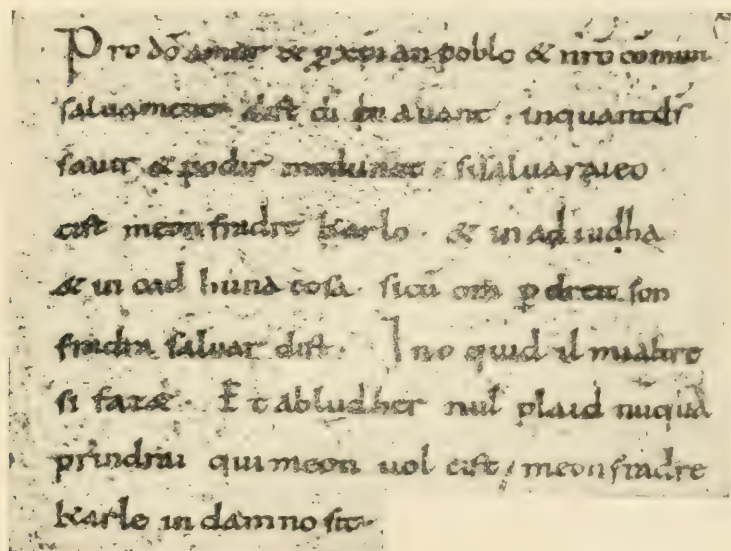 Pro dō amur & ꝑ xp̄ian poblo & nr̄o cōmun
saluament dist di en auant · inquantdſ
sauir & podir medunat · si saluaraieo
cist meon fradre karlo · & in ad iudha
& in cad huna cosa · sicū om̄ ꝑ dreit son
fradra saluar dist · Ino quid il mialtre
si fazæ · Et abludher nul plaid nūquā
prindrai qui meon uol cist / meon fradre
karle in damno sit ·